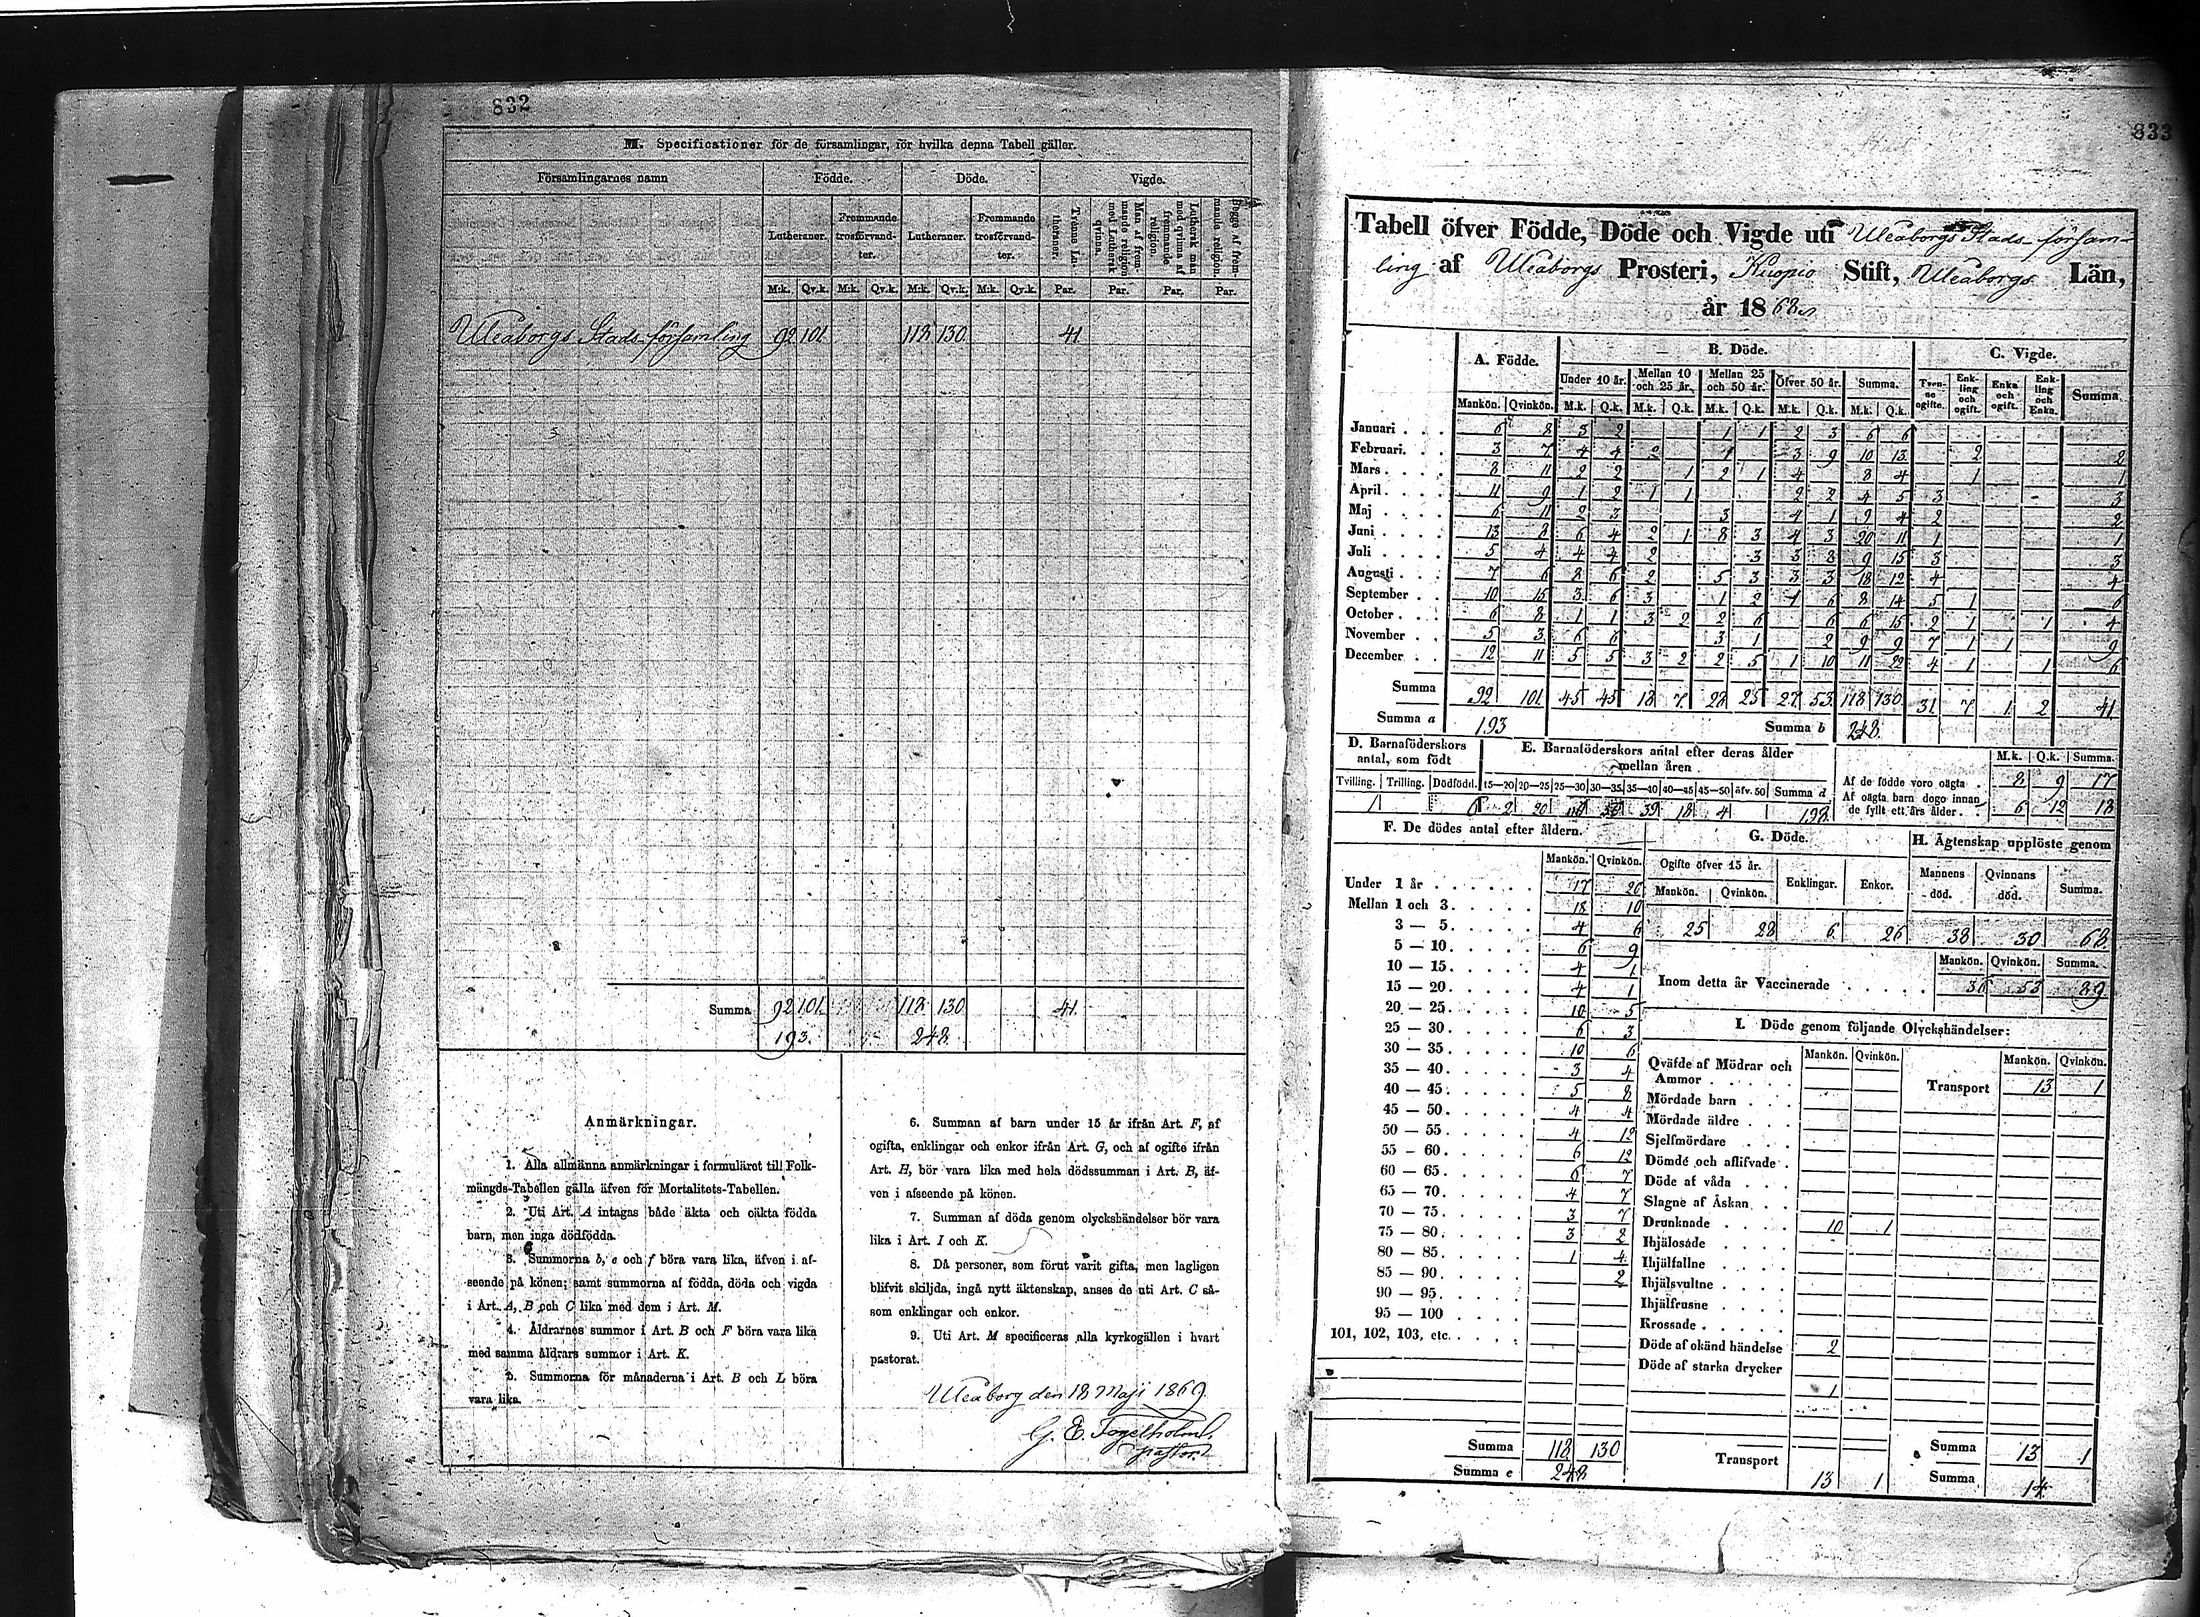 832
M. Specificationer för de församlingar, för hvilka denna Tabell gäller.
Församlingarnes namn Födde. Döde. Vigde.
Lutheraner. Fremmande trosförvandter. Lutheraner. Fremmande trosförvandter. Tvänne Lutheraner. Man af fremmande religion med Luthersk qvinna. Luthersk man med qvinna af fremmande religion. Begge af fremmande religion.
M.k. Qv.k. M.k. Qv.k. M.k. Qv.k. M.k. Qv.k. Par. Par. Par. Par.
Uleåborgs Stads-församling 92 101 118 130 41
Summa 92 101 118 130 41
193. 248.
Anmärkningar.
1. Alla allmänna anmärkningar i formuläret till Folk-
mängds-Tabellen gälla äfven för Mortalitets-Tabellen.
2. Uti Art. A intagas både äkta och oäkta födda
barn, men inga dödfödda.
3. Summorna b, e och f böra vara lika, äfven i af-
seende på könen; samt summorna af födda, döda och vigda
i Art. A, B och C lika med dem i Art. M.
4. Åldrarnes summor i Art. B och F böra vara lika
med samma åldrars summor i Art. K.
5. Summorna för månaderna i Art. B och L böra
vara lika.
6. Summan af barn under 15 år ifrån Art. F, af
ogifta, enklingar och enkor ifrån Art. G, och af ogifte ifrån
Art. H, bör vara lika med hela dödssumman i Art. B, äf-
ven i afseende på könen.
7. Summan af döda genom olyckshändelser bör vara
lika i Art. I och K.
8. Då personer, som förut varit gifta, men lagligen
blifvit skiljda, ingå nytt äktenskap, anses de uti Art. C så-
som enklingar och enkor.
9. Uti Art. M specificeras alla kyrkogällen i hvart
pastorat.
Uleåborg den 18 Maji 1869.
G. E. Fogelholm.
pastor.
833
Tabell öfver Födde, Döde och Vigde uti Uleåborgs Stads-försam-
ling af Uleåborgs Prosteri, Kuopio Stift, Uleåborgs Län,
år 1868
A. Födde. B. Döde. C. Vigde.
Under 10 år. Mellan 10 och 25 år. Mellan 25 och 50 år. Öfver 50 år. Summa. Tvenne ogifte. Enkling och ogift. Enka och ogift. Enkling och Enka. Summa.
Mankön. Qvinkön. M.k. Q.k. M.k. Q.k. M.k. Q.k. M.k. Q.k. M.k. Q.k.
Januari 6 8 3 2 1 1 2 3 6 6
Februari. 3 7 4 4 2 1 3 9 10 13 2 2
Mars 8 11 2 2 1 2 1 4 8 4 1 1
April. 11 9 1 2 1 1 2 2 4 5 3 3
Maj 6 11 2 3 3 4 1 9 4 2 2
Juni 13 8 6 4 2 1 8 3 4 3 20 11 1 1
Juli 5 4 4 4 2 3 3 8 9 15 3 3
Augusti 7 6 8 6 2 5 3 3 3 18 12 4 4
September 10 15 3 6 3 1 2 1 6 8 14 5 1 6
October 6 8 1 1 3 2 2 6 6 6 15 2 1 1 4
November 5 3 6 6 3 1 2 9 9 7 1 1 9
December 12 11 5 5 3 2 2 5 1 10 11 22 4 1 1 6
Summa 92 101 45 45 18 7 28 25 27 53 118 130 31 7 1 2 41
Summa a 193 Summa b 248.
D. Barnaföderskors antal, som födt
E. Barnaföderskors antal efter deras ålder mellan åren
M.k. Q.k. Summa.
Tvilling. Trilling. Dödfödd. 15—20 20—25 25—30 30—35 35—40 40—45 45—50 öfv. 50 Summa d
1 6 2 20 39 18 4 198
Af de födde voro oägta 8 9 17
Af oägta barn dogo innan de fyllt ett års ålder. 6 12 18
F. De dödes antal efter åldern.
Mankön. Qvinkön.
Under 1 år 17 20
Mellan 1 och 3. 18 10
3 — 5. 4 6
5 — 10. 6 9
10 — 15. 4 1
15 — 20. 4 1
20 — 25. 10 5
25 — 30. 6 3
30 — 35. 10 6
35 — 40. 3 4
40 — 45. 5 8
45 — 50. 4 4
50 — 55. 4 12
55 — 60. 6 12
60 — 65. 6 7
65 — 70. 4 7
70 — 75. 3 7
75 — 80. 3 2
80 — 85. 1 4
85 — 90. 2
90 — 95.
95 — 100
101, 102, 103, etc.
Summa 118 130
Summa e 248.
G. Döde.
Ogifte öfver 15 år. Enklingar. Enkor.
Mankön. Qvinkön.
25 28 6 26
H. Ägtenskap upplöste genom
Mannens död. Qvinnans död. Summa.
38 30 68
Mankön. Qvinkön. Summa.
Inom detta år Vaccinerade 36 53 89
I. Döde genom följande Olyckshändelser:
Mankön. Qvinkön. Mankön. Qvinkön.
Qväfde af Mödrar och Ammor
Transport 13 1
Mördade barn
Mördade äldre
Sjelfmördare
Dömde och aflifvade
Döde af våda
Slagne af Åskan
Drunknade 10 1
Ihjälosade
Ihjälfallne
Ihjälsvultne
Ihjälfrusne
Krossade
Döde af okänd händelse 2
Döde af starka drycker
1
Transport 13 1
Summa 13 1
Summa 14